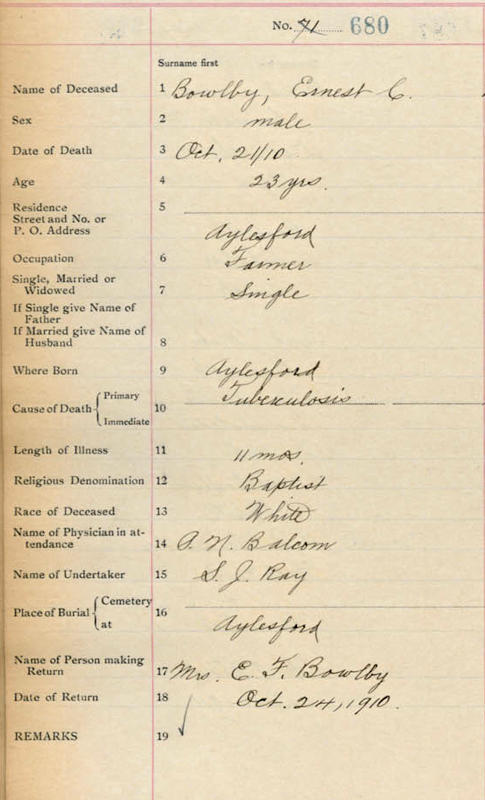 No. 71 680
Surname first
Name of Deceased 1 Bowlby, Ernest C.
Sex 2 male
Date of Death 3 Oct. 21/10
Age 4 23 yrs.
Residence 5
Street and No. or
P. O. Address Aylesford
Occupation 6 Farmer
Single, Married or
Widowed 7 Single
If Single give Name of
Father
If Married give Name of
Husband 8
Where Born 9 Aylesford
Cause of Death { Primary Tuberculosis
10
Immediate
Length of Illness 11 11 mos.
Religious Denomination 12 Baptist
Race of Deceased 13 White
Name of Physician in at-
tendance 14 P. N. Balcom
Name of Undertaker 15 S. J. Ray
Place of Burial { Cemetery 16
at Aylesford
Name of Person making
Return 17 Mrs. E. F. Bowlby
Date of Return 18 Oct. 24, 1910.
REMARKS 19